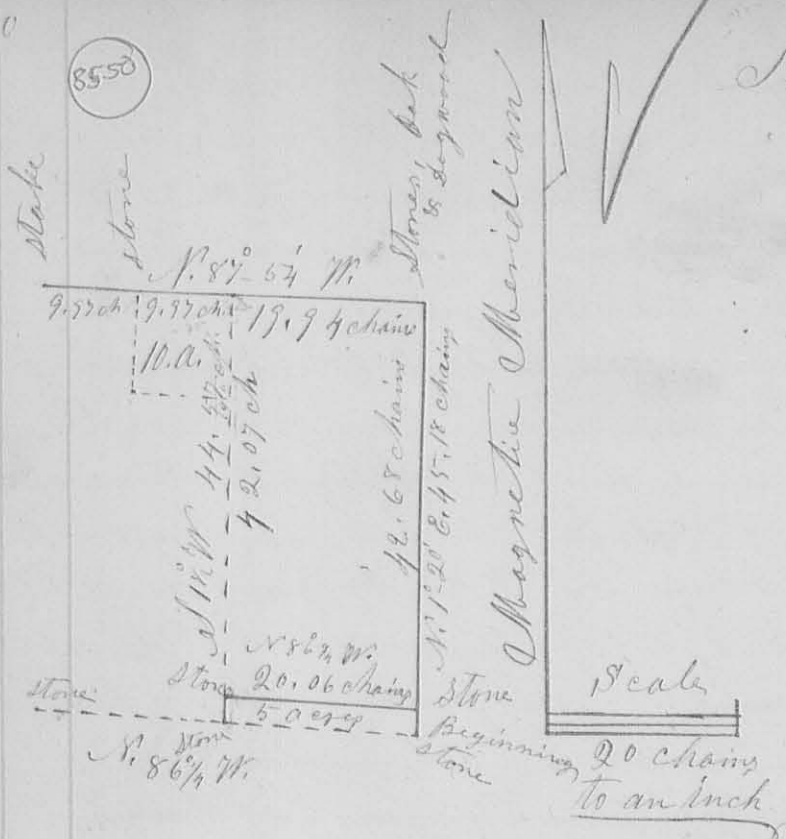 8550
stake
stone
Stones, Oak
& Dogwood
N. 87°-54' W.
9.97 ch
9.97 ch.
19.94 chains
10.A.
S 1½° W 44.57 ch.
42.07 ch
42.68 chains
N. 1°-20' E. 45.18 chains
Magnetic Meridian
N 86¾ W.
20.06 chains
5 acres
stone
Stone
Stone
Stone
N. 86¾° W.
Beginning
Stone
Scale
20 chains
to an inch